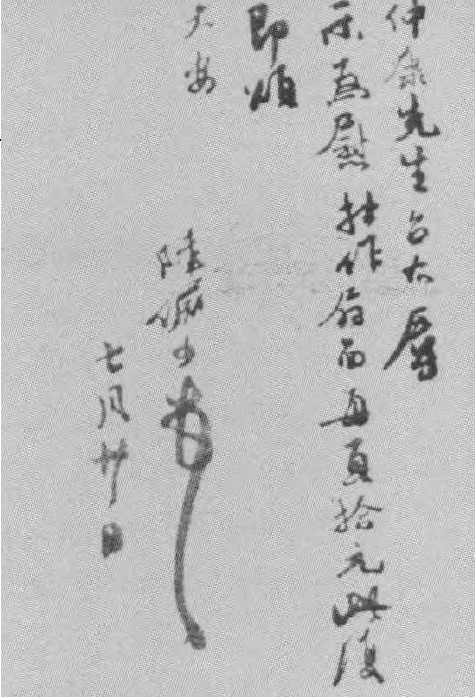 仲康先生台右屬
示為慰拙作扇面每頁拾元此復
即頌
大安
陸儼少
七月廿日